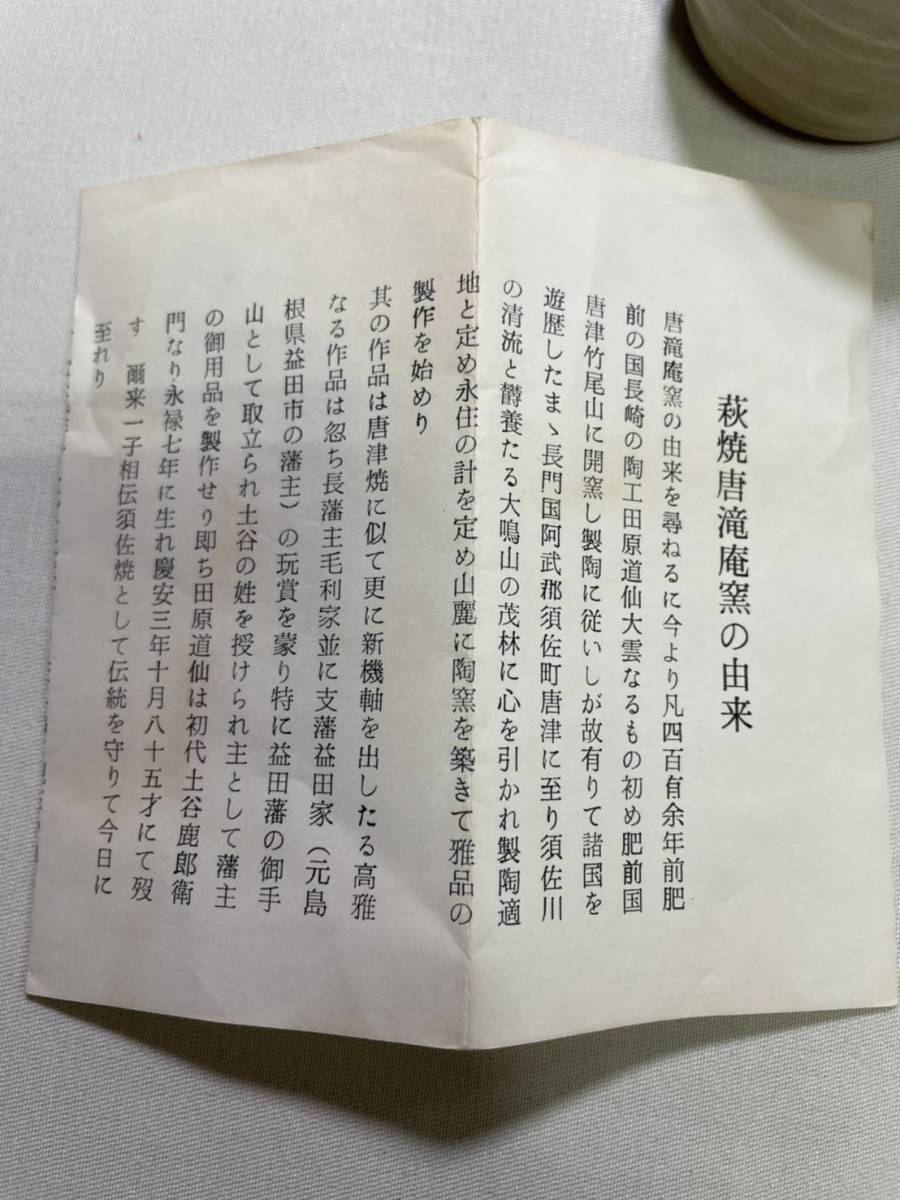 萩焼唐滝庵窯の由来
唐滝庵窯の由来を尋ねるに今より凡四百有余年前肥
前の国長崎の陶工田原道仙大雲なるもの初め肥前国
唐津竹尾山に開窯し製陶に従いしが故有りて諸国を
遊歴したまゝ長門国阿武郡須佐町唐津に至り須佐川
の清流と欝養たる大鳴山の茂林に心を引かれ製陶適
地と定め永住の計を定め山麗に陶窯を築きて雅品の
製作を始めり
其の作品は唐津焼に似て更に新機軸を出したる高雅
なる作品は忽ち長藩主毛利家並に支藩益田家（元島
根県益田市の藩主）の玩賞を蒙り特に益田藩の御手
山として取立られ土谷の姓を授けられ主として藩主
の御用品を製作せり即ち田原道仙は初代土谷鹿郎衛
門なり永禄七年に生れ慶安三年十月八十五才にて歿
す　爾来一子相伝須佐焼として伝統を守りて今日に
至れり